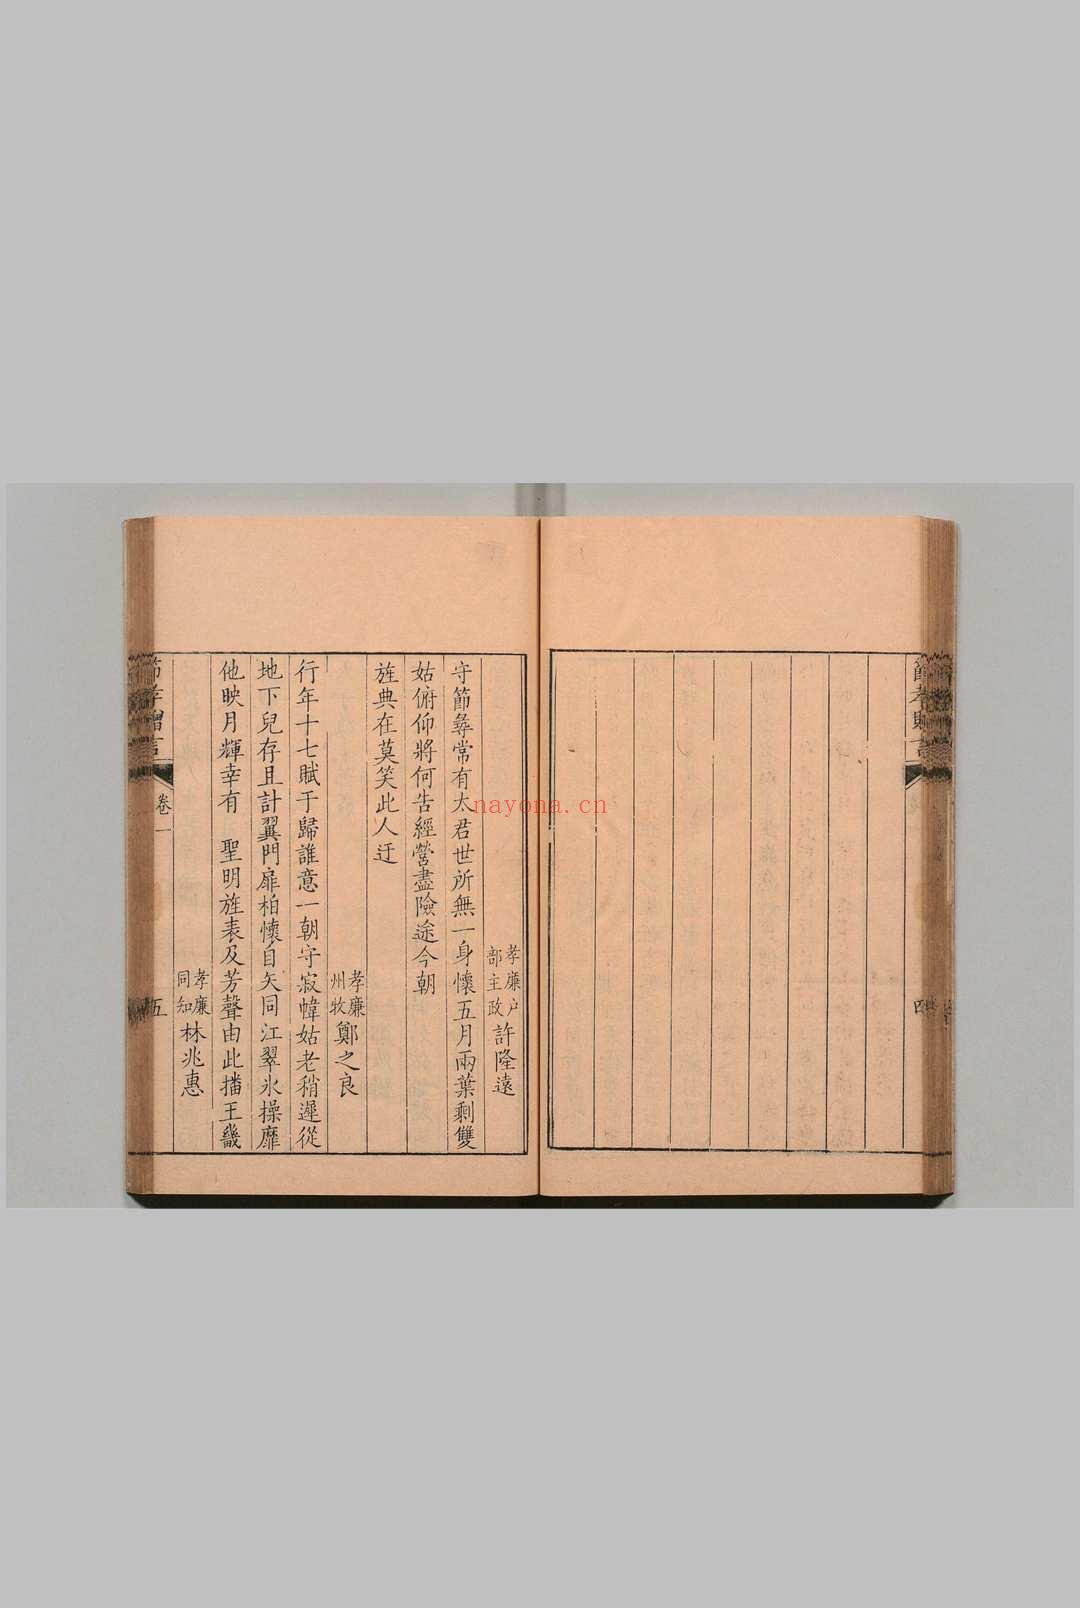 孝廉户部主政許隆遠
守節彝常有太君世所無一身懷五月兩葉剩雙
姑俯仰將何告經營盡險途今朝
旌典在莫笑此人迂
孝廉州牧鄭之良
行年十七賦于歸誰意一朝守寂幃姑老稍遲從
地下兒存且計翼門扉柏懷自矢同江翠氷操靡
他映月輝幸有 聖明旌表及芳聲由此播王畿
孝廉同知林兆惠
節孝贈言
卷一
五
nayona.cn